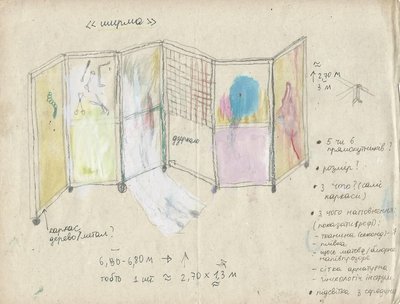 << ширма >>
≈
↑ 2,30 м
3 м
дзеркало
• 5 чи 6
прямокутників?
• розмір?
• З чого? (самі
каркаси)
• З чого наповнення
(показати фруді)
- тканина (секонд)
- плівка
напівпрозоре
- сітка арматурна
• підсвітка з середини
каркас
дерево/метал?
6,90-6,80 м →
тобто 1 шт ≈ 2,70 × 1,3 м
≈